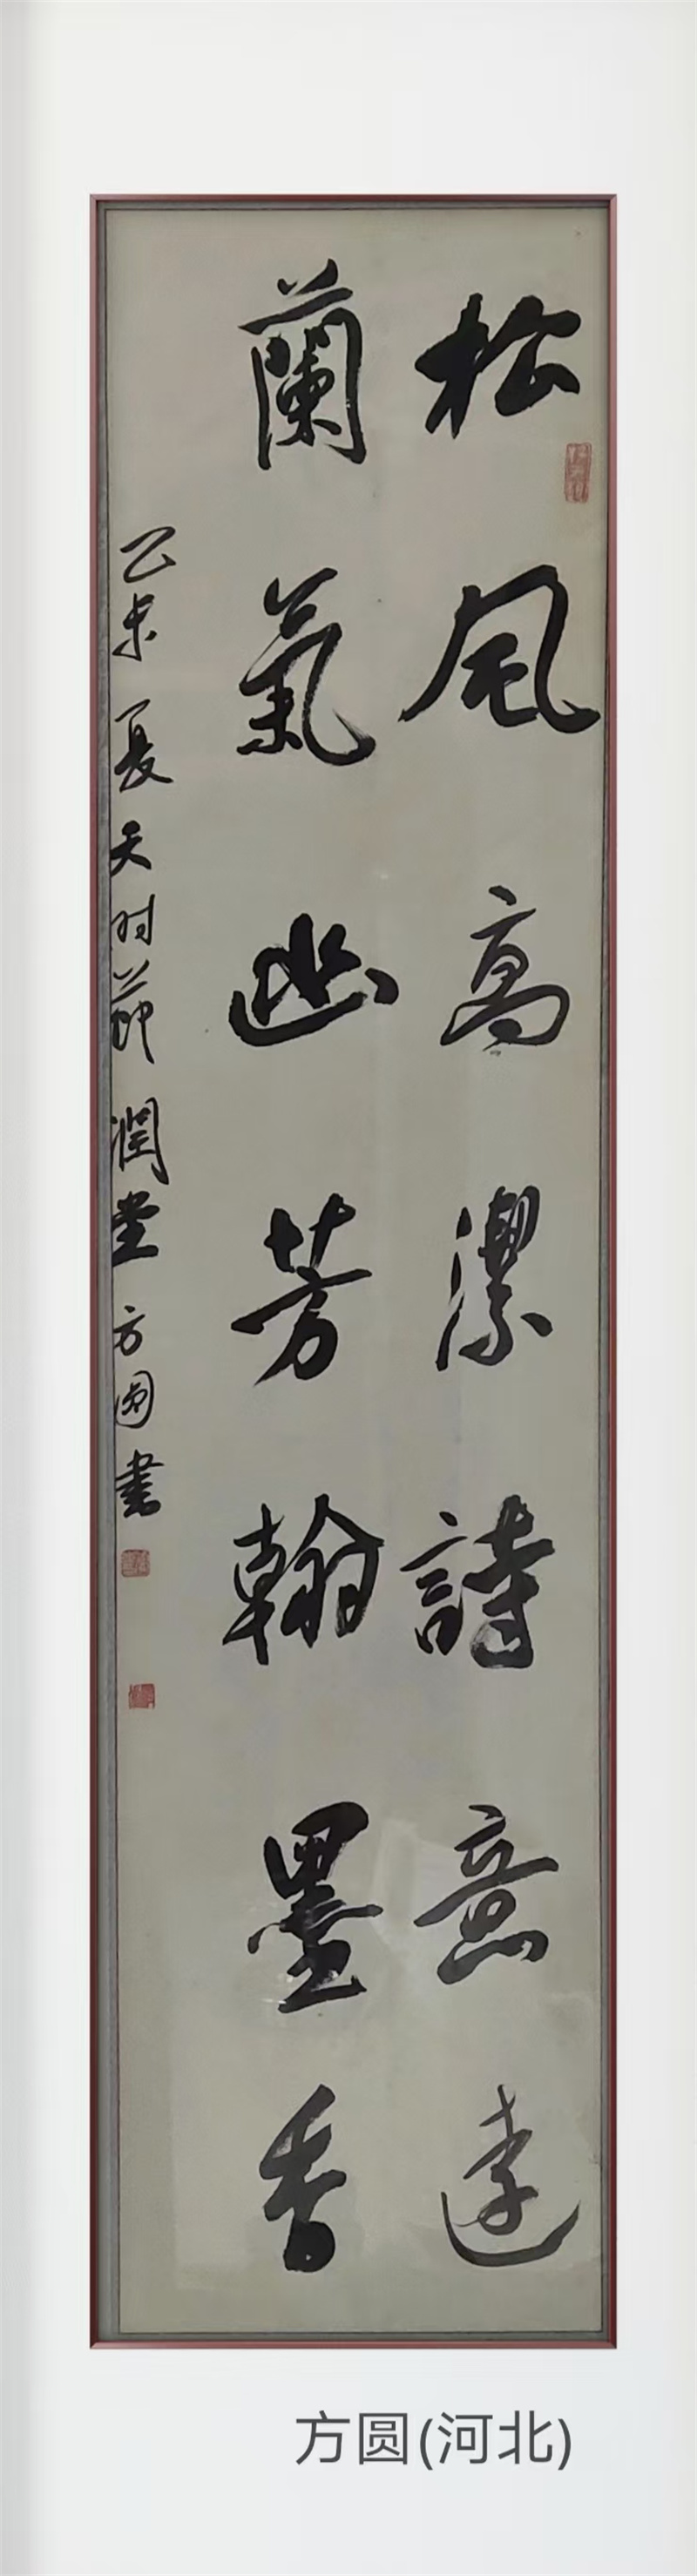 松風高潔詩意遠
蘭氣幽芳翰墨香
乙未夏天时節潤堂方圓書
方圆(河北)